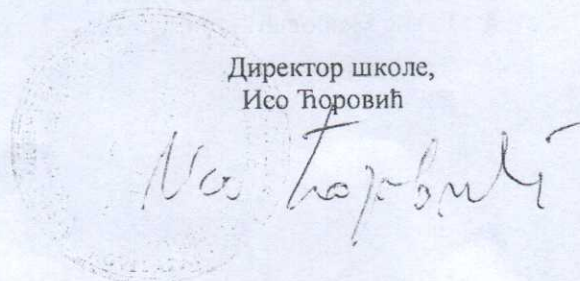 Директор школе,
Исо Ћоровић
Исо Ћоровић